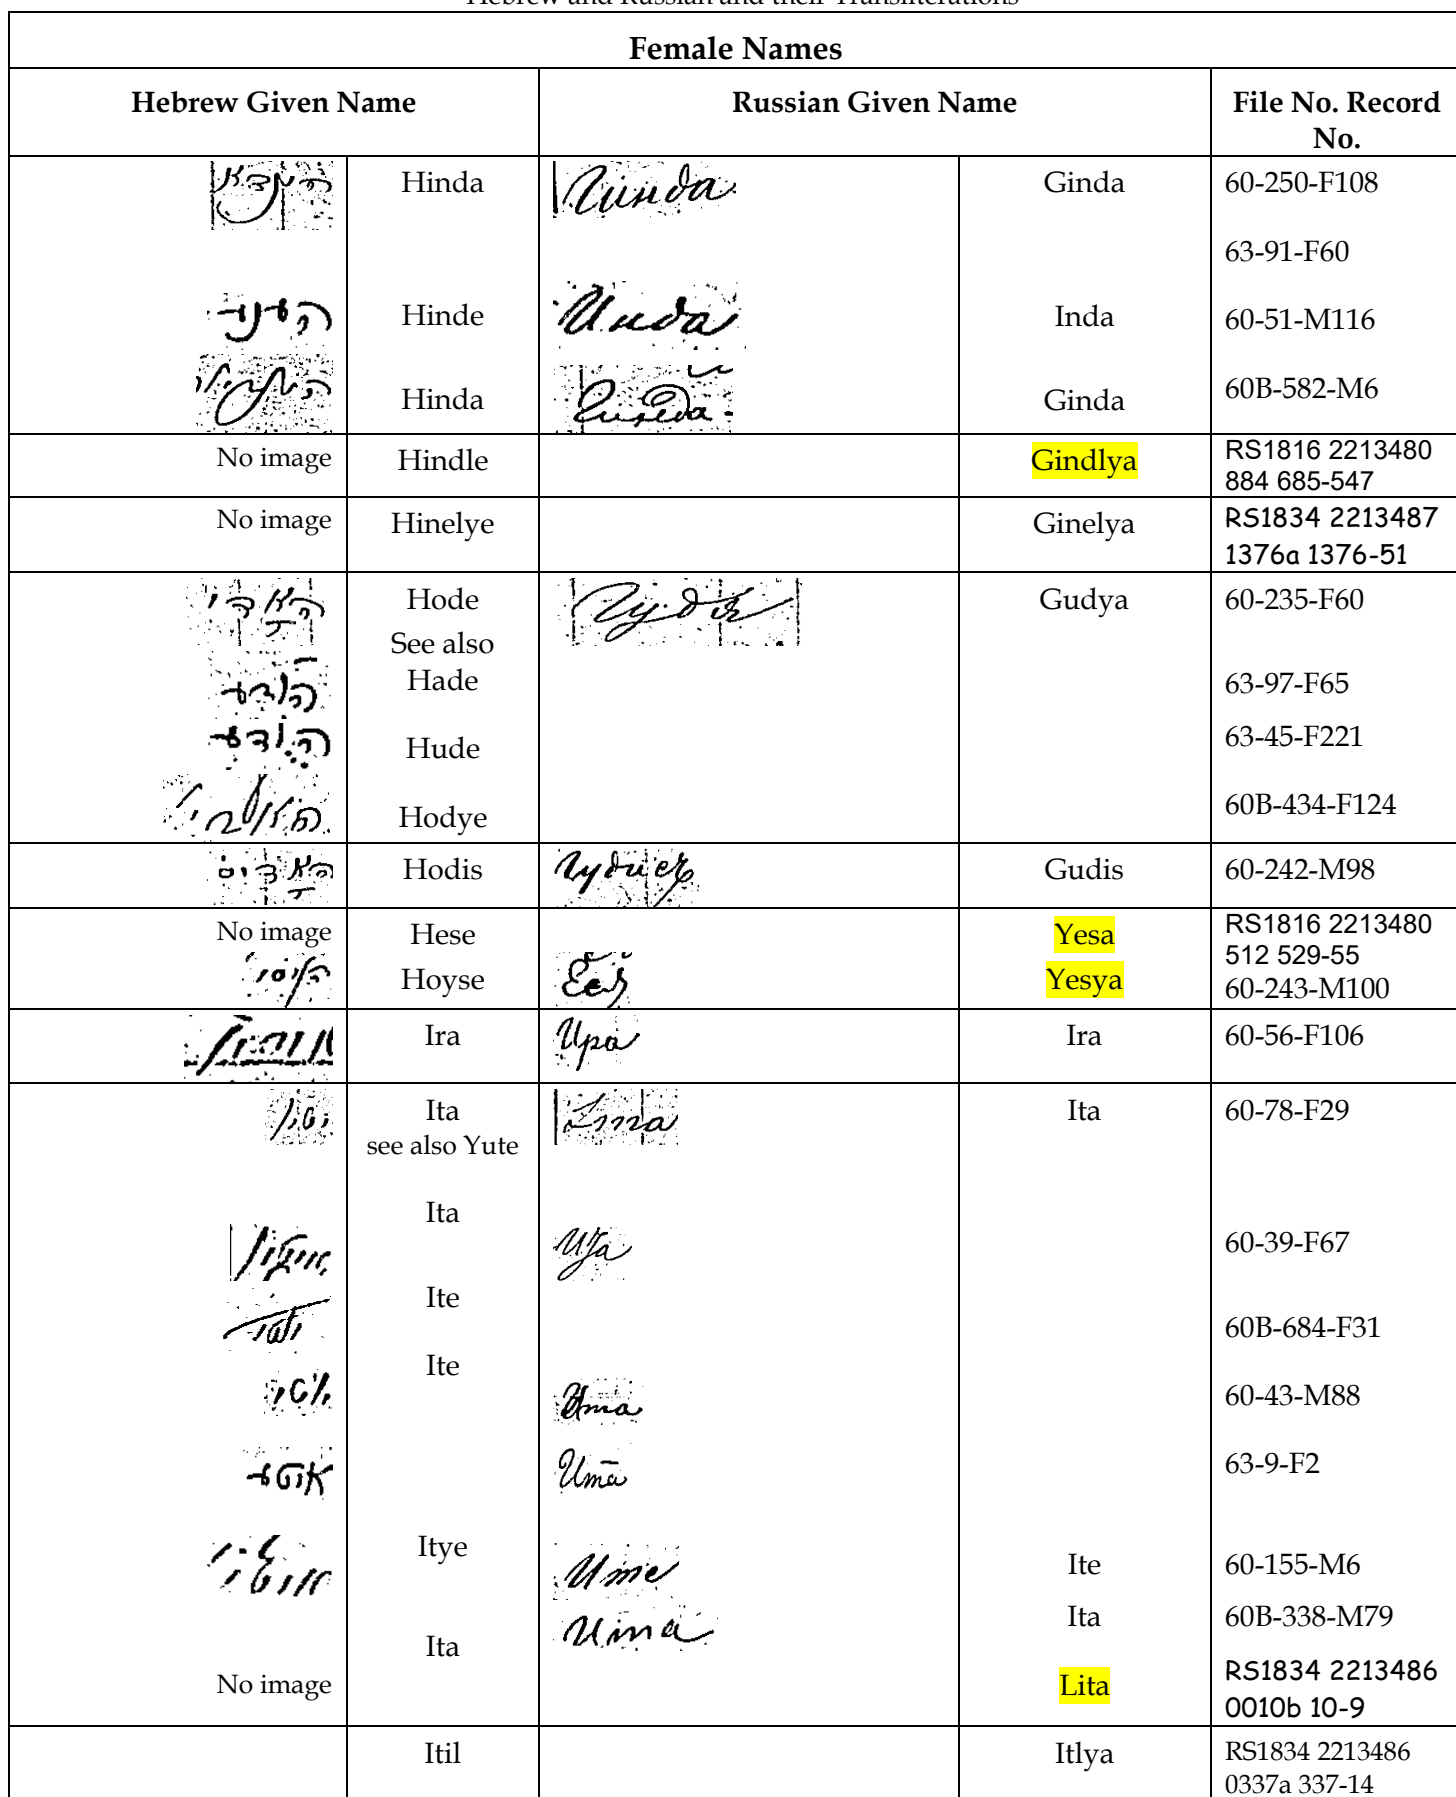 Hebrew and Russian and their Transliterations
Female Names
Hebrew Given Name Russian Given Name File No. Record No.
Hinda Гинда Ginda 60-250-F108
63-91-F60
Hinde Инда Inda 60-51-M116
Hinda Ginda 60B-582-M6
No image Hindle Gindlya RS1816 2213480
884 685-547
No image Hinelye Ginelya RS1834 2213487
1376a 1376-51
Hode Gudya 60-235-F60
See also
Hade 63-97-F65
הודע Hude 63-45-F221
Hodye 60B-434-F124
האדיס Hodis Gudis 60-242-M98
No image Hese Yesa RS1816 2213480
512 529-55
Hoyse Yesya 60-243-M100
Ira Ира Ira 60-56-F106
Ita Ита Ita 60-78-F29
see also Yute
Ita
Ита 60-39-F67
Ite
60B-684-F31
Ite
Ита 60-43-M88
איטע Ита 63-9-F2
Itye Ите Ite 60-155-M6
Ита Ita 60B-338-M79
Ita
No image Lita RS1834 2213486
0010b 10-9
Itil Itlya RS1834 2213486
0337a 337-14